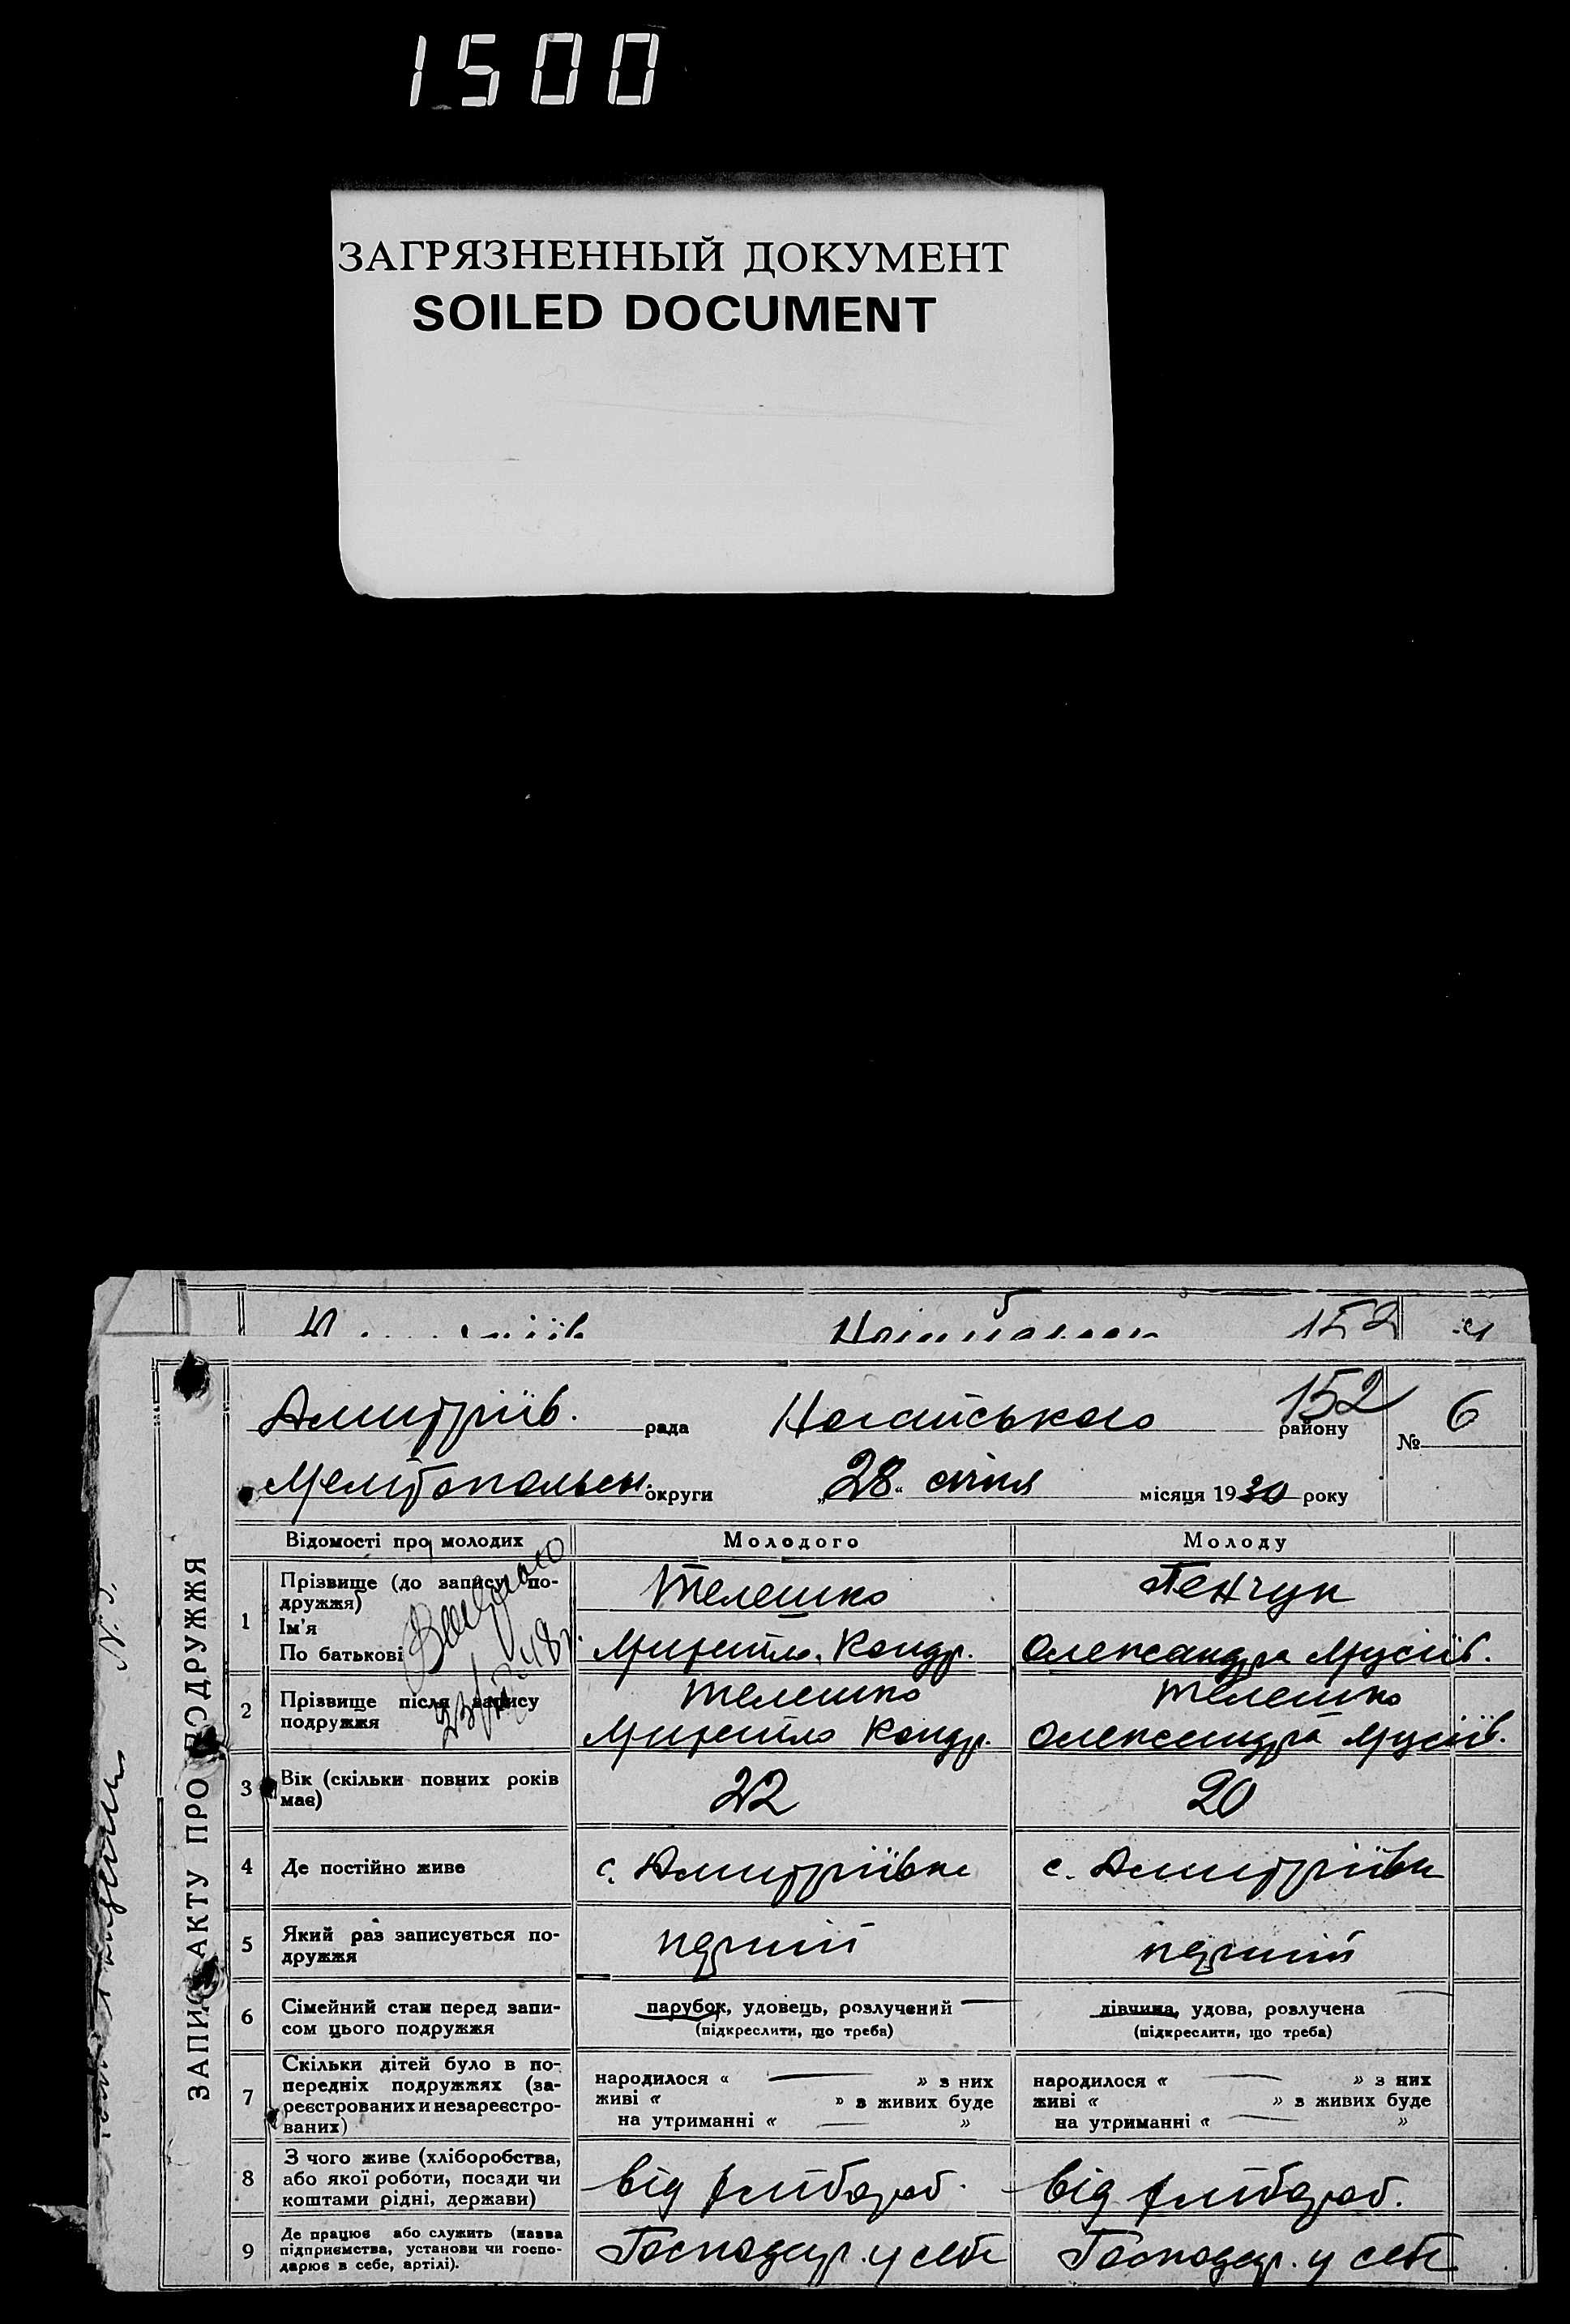 1500
ЗАГРЯЗНЕННЫЙ ДОКУМЕНТ
SOILED DOCUMENT
152
ЗАПИС АКТУ ПРО ПОДРУЖЖЯ
Дмитріїв. рада Ногайського району 152 № 6
Мелітопольськ. округи „28“ січня місяця 1930 року
Відомості про молодих Молодого Молоду
1 Прізвище (до запису подружжя) Телешко Пенчук
Ім'я
По батькові Микита Кондр. Олександра Мусіїв.
2 Прізвище після запису подружжя Телешко Телешко
Микита Кондр. Олександра Мусіїв.
3 Вік (скільки повних років має) 22 20
4 Де постійно живе с. Дмитрівка с. Дмитрівка
5 Який раз записується подружжя перший перший
6 Сімейний стан перед записом цього подружжя парубок, удовець, розлучений дівчина, удова, розлучена
(підкреслити, що треба) (підкреслити, що треба)
7 Скільки дітей було в попередніх подружжях (зареєстрованих и незареєстрованих) народилося « — » з них народилося « — » з них
живі « » в живих буде живі « » в живих буде
на утриманні « — » на утриманні « — »
8 З чого живе (хліборобства, або якої роботи, посади чи коштами рідні, держави) від хлібороб. від хлібороб.
9 Де працює або служить (назва підприємства, установи чи господарює в себе, артілі). Господар. у себе Господар. у себе